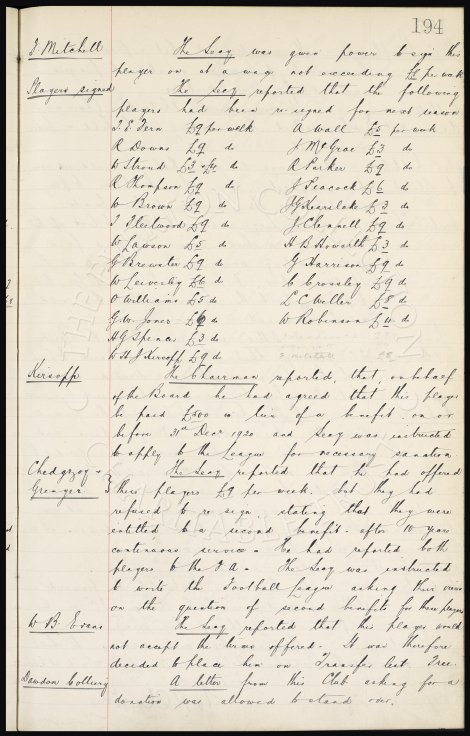 194
T. Mitchell The Secy was given power to sign this
player on at a wage not exceeding per week
Players signed The Secy reported that the following
players had been re-signed for next season
T. E. Fern £9 per week A Wall £5 per week
R Downs £9 do J McGrae £3 do
W Stroud £3 do R Parker £9 do
R Thompson £9 do J Peacock £6 do
W Brown £9 do J G Kearslake £3 do
T Fleetwood £9 do J. Clennell £9 do
W Lawson £5 do H B Howarth £3 do
G Brewster £9 do G Harrison £9 do
W Leivesley £6 do C Crossley £9 do
O Williams £5 do L C Weller £8 do
G. W. Jones £6 do W Robinson £4 do
H G Spence £3 do
W H J Kirsopp £9 do
Kirsopp The Chairman reported, that, on behalf
of the Board he had agreed that this player
be paid £500 in lieu of a benefit on or
before 31st Decr 1920 and Secy was instructed
to apply to the League for necessary sanction
Chedgzoy & The Secy reported that he had offered
Grenyer } these players £9 per week. but they had
refused to re sign. stating that they were
entitled to a second benefit after 10 years
continuous service. He had reported both
players to the F A. The Secy was instructed
to write the Football League asking their views
on the question of second benefits for these players
W. B. Evans The Secy reported that this player would
not accept the terms offered. It was therefore
decided to place him on Transfer List. Free.
Dawdon Colliery A letter from this Club asking for a
donation was allowed to stand over.